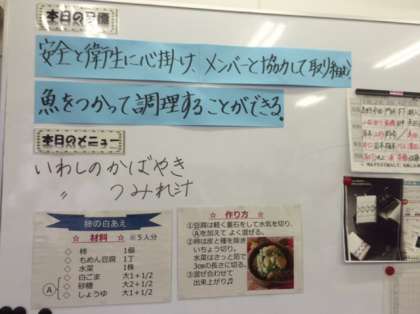 本日の目標
安全と衛生に心掛け、メンバーと協力して取り組む
魚をつかって調理することができる。
本日のメニュー
いわしのかばやき
〃 つみれ汁
柿の白あえ
☆ 材料 ☆ ※5人分
◇ 柿 1個
◇ もめん豆腐 1丁
◇ 水菜 1株
Ⓐ
◇ 白ごま 大1+1/2
◇ 砂糖 大2+1/2
◇ しょうゆ 大1+1/2
☆ 作り方 ☆
①豆腐は軽く重石をして水気を切り、
Ⓐを加えて よく混ぜる。
②柿は皮と種を除き
いちょう切り。
水菜はさっと茹で
3㎝の長さに切る。
③混ぜ合わせて
出来上がり♫